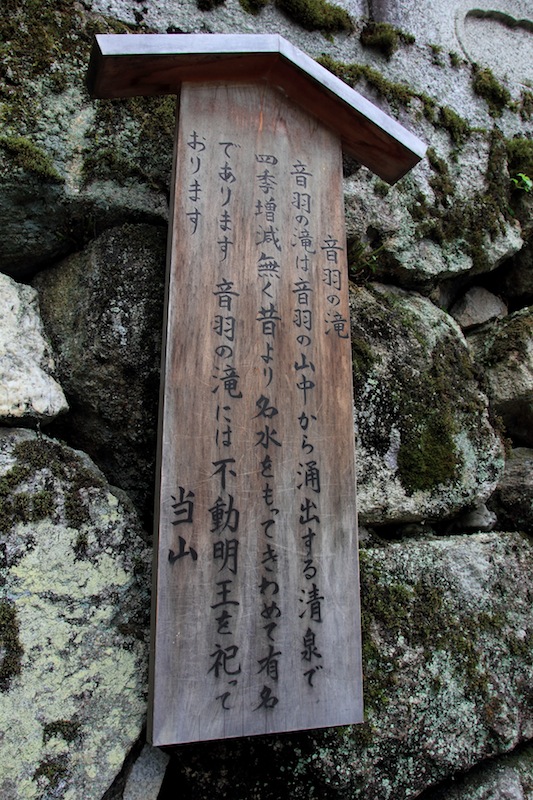 音羽の滝
音羽の滝は音羽の山中から涌出する清泉で
四季増減無く昔より名水をもってきわめて有名
であります 音羽の滝には不動明王を祀って
おります
当山